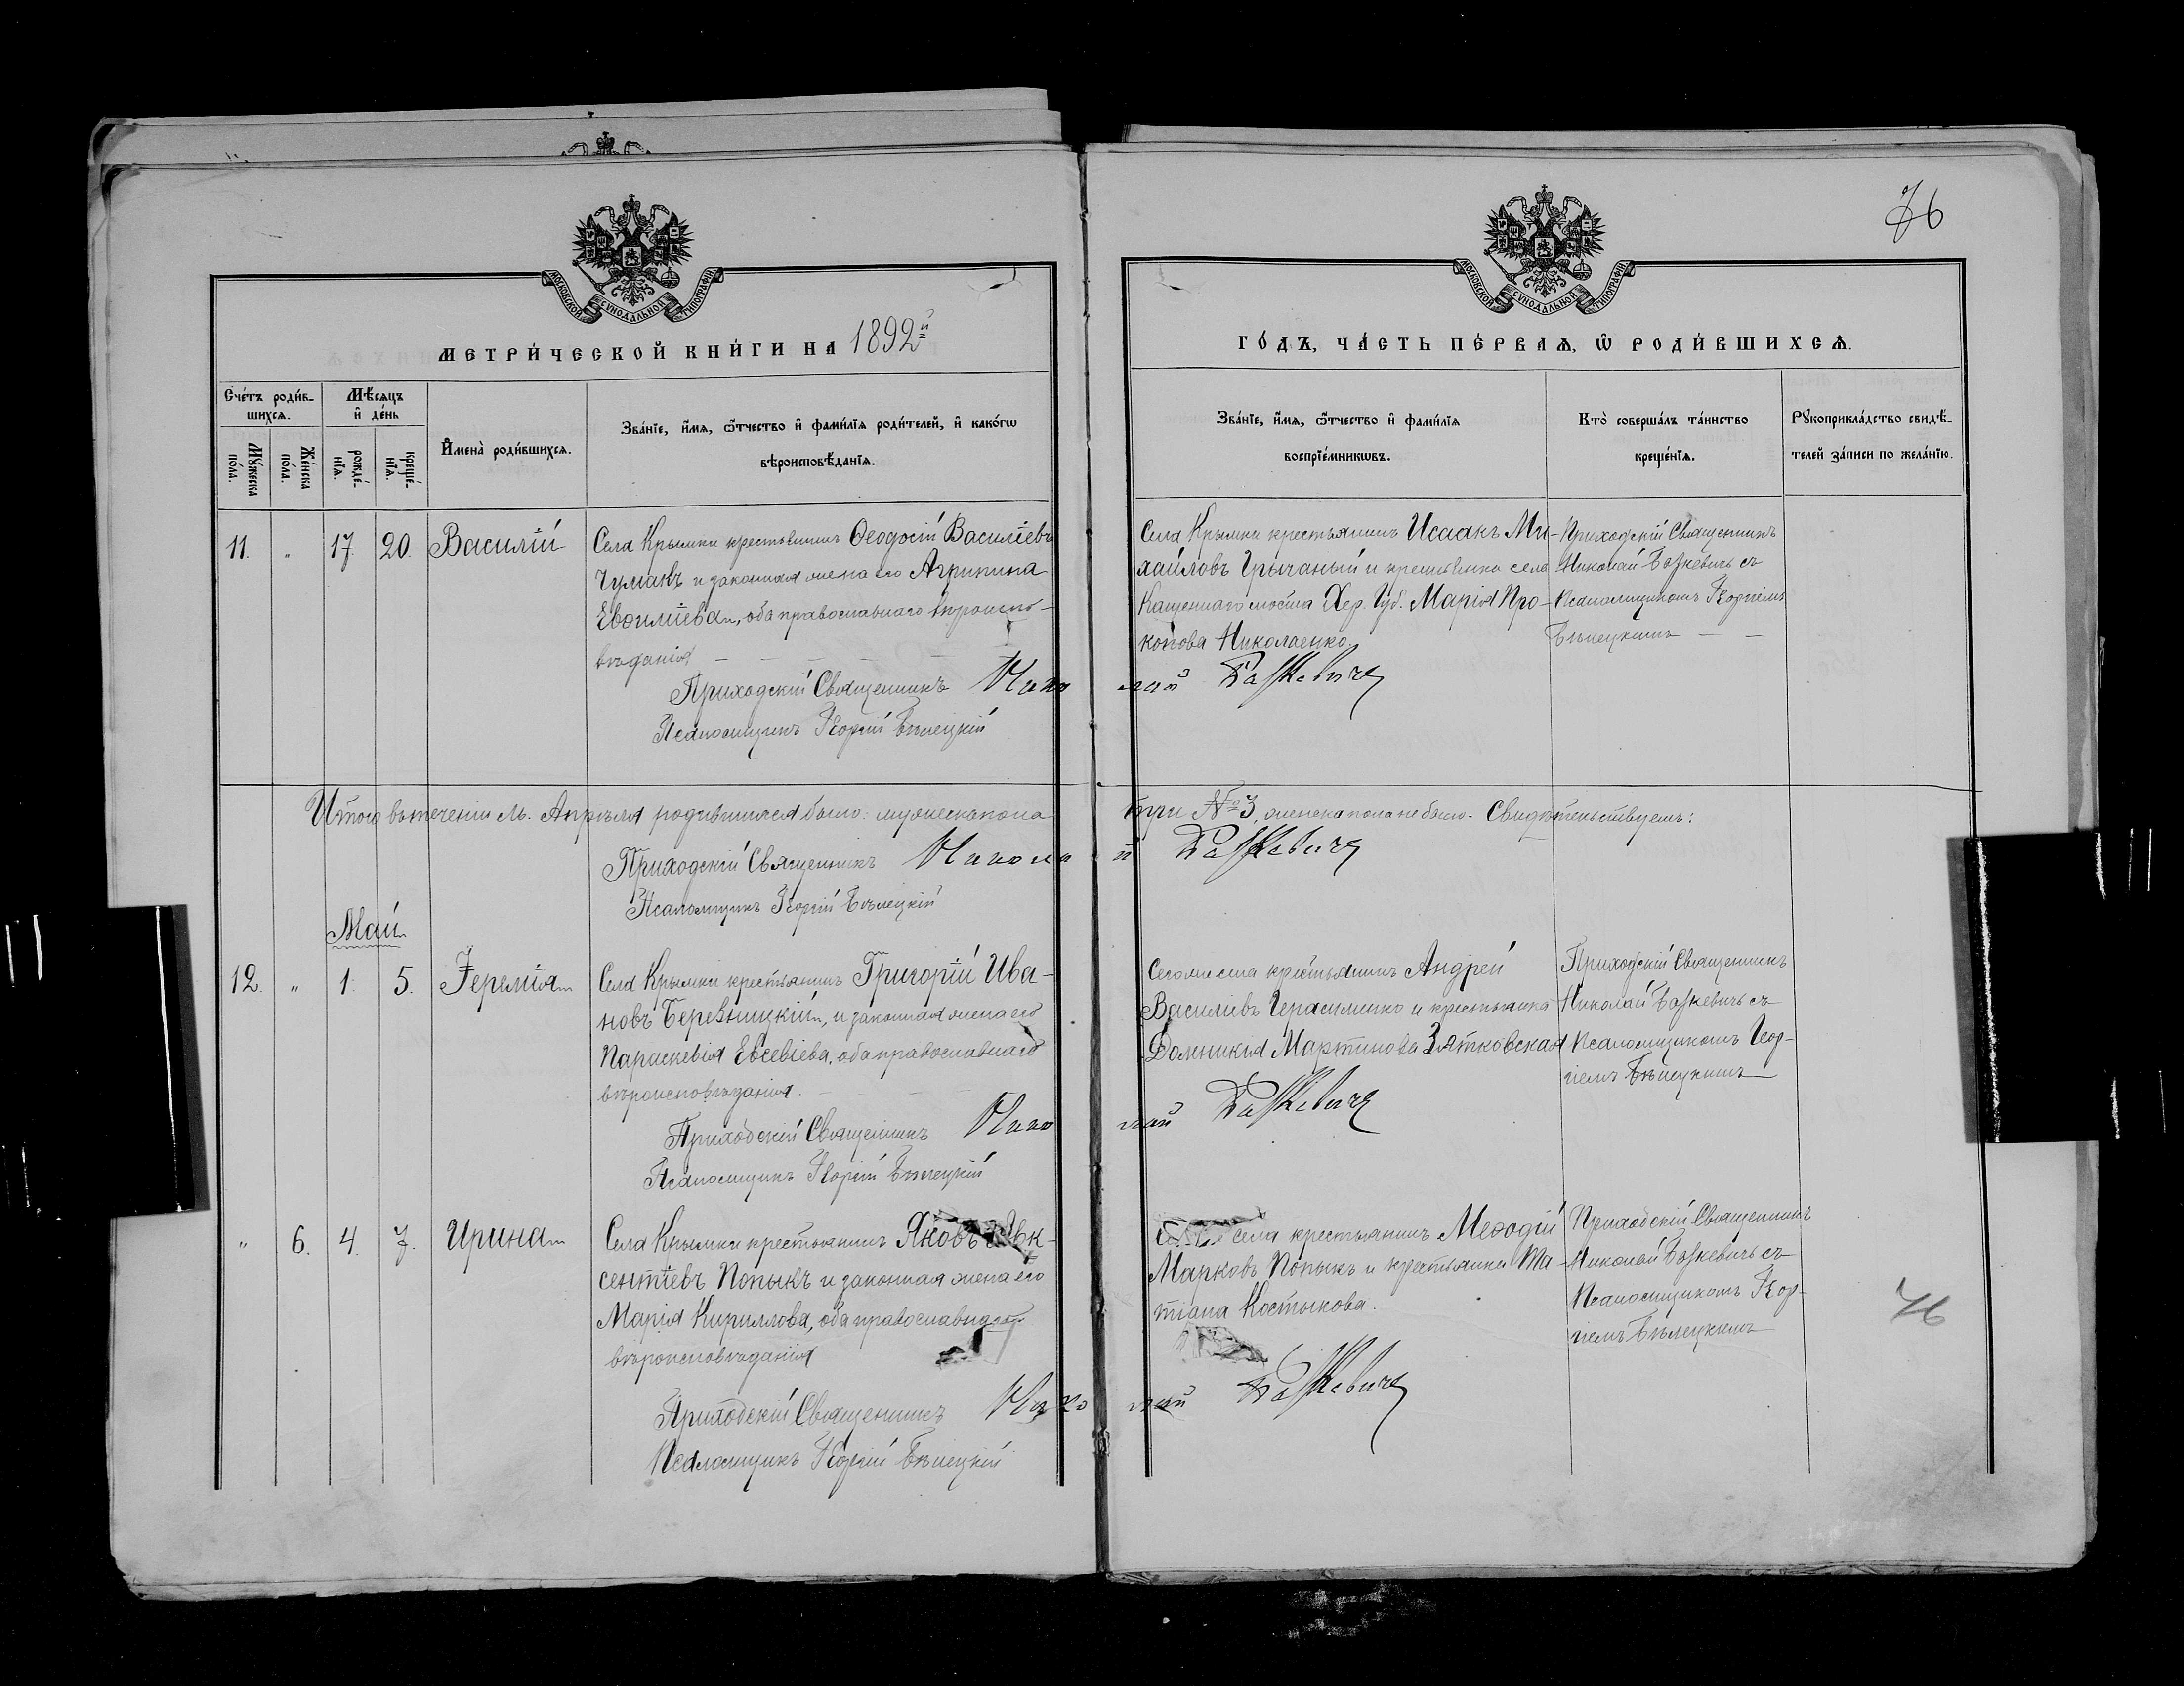 76
МОСКОВСКОЙ СѴНОДАЛЬНОЙ ТИПОГРАФІИ
МЕТРИ́ЧЕСКОЙ КНИ́ГИ НА 1892й
Сче́тъ роди́вшихсѧ.
Мѣ́сѧцъ и҆ де́нь
Мꙋ́жеска по́ла.
Же́нска по́ла.
рожде́нїѧ.
креще́нїѧ.
И҆мена̀ роди́вшихсѧ.
Зва́нїе, и҆́мѧ, ѻ҆́тчество и҆ фами́лїѧ роди́телей, и҆ како́гѡ
вѣроисповѣ́данїѧ.
11. " 17. 20. Василій
Села Крымки крестьянинъ Ѳеодосій Василіевъ
Чумакъ и законная жена его Агрипина
Евѳиміева, оба православнаго вѣроиспо-
вѣданія
Приходскій Священникъ Нико
Псаломщикъ Георгій Бѣлецкій
Итого въ теченіи м. Апрѣля родившихся было: мужеска пола
Приходскій Священникъ Никола
Псаломщикъ Георгій Бѣлецкій
Май
12. " 1. 5. Іеремія
Села Крымки крестьянинъ Григорій Ива-
новъ Березницкій, и законная жена его
Параскевія Евсевіева, оба православнаго
вѣроисповѣданія.
Приходскій Священникъ Нико
Псаломщикъ Георгій Бѣлецкій
" 6. 4. 7. Ирина
Села Крымки крестьянинъ Яковъ Авк-
сентіевъ Попыкъ и законная жена его
Марія Кириллова, оба православнаго
вѣроисповѣданія
Приходскій Священникъ Нико
Псаломщикъ Георгій Бѣлецкій
МОСКОВСКОЙ СѴНОДАЛЬНОЙ ТИПОГРАФІИ
ГО́ДЪ, ЧА́СТЬ ПЕ́РВАѦ, Ѡ҆ РОДИ́ВШИХСѦ.
Зва́нїе, и҆́мѧ, ѻ҆́тчество и҆ фами́лїѧ
воспрїе́мникѡвъ.
Кто̀ соверша́лъ та́инство
креще́нїѧ.
Рꙋкоприкла́дство свидѣ́-
телей за́писи по жела́нїю.
Села Крымки крестьянинъ Исаакъ Ми-
хайловъ Грычаный и крестьянка села
Каменнаго моста Хер. Губ. Марія Про-
копова Николаенко
лай Базкевичъ
Приходскій Священникъ
Николай Базкевичъ съ
Псаломщикомъ Георгіемъ
Бѣлецкимъ
три № 3, женска пола не было. Свидѣтельствуемъ:
й Базкевичъ
Сего же села крестьянинъ Андрей
Василіевъ Герасименко и крестьянка
Домникія Мартинова Зятковская
лай Базкевичъ
Приходскій Священникъ
Николай Базкевичъ съ
Псаломщикомъ Геор-
гіемъ Бѣлецкимъ
села крестьянинъ Меѳодій
Марковъ Попыкъ и крестьянка Та-
тіана Костыкова.
лай Базкевичъ
Приходскій Священникъ
Николай Базкевичъ съ
Псаломщикомъ Геор-
гіемъ Бѣлецкимъ
76